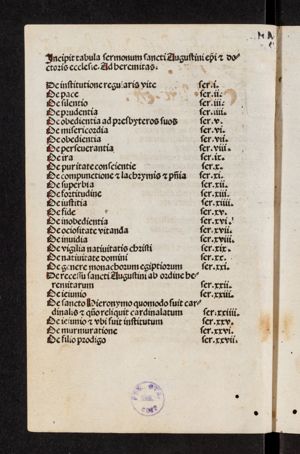 Incipit tabula sermonum sancti Augustini epi ⁊ do-
ctoris ecclesie. Ad heremitas.
De institutione regularis vite ser.i.
De pace ser.ii.
De silentio ser.iii.
De prudentia ser.iiii.
De obedientia ad presbyteros suos ser.v.
De misericordia ser.vi.
De obedientia ser.vii.
De perseuerantia ser.viii.
De ira ser.ix.
De puritate conscientie ser.x.
De compunctione ⁊ lachrymis ⁊ pñia ser.xi.
De superbia ser.xii.
De fortitudine ser.xiii.
De iustitia ser.xiiii.
De fide ser.xv.
De inobedientia ser.xvi.
De ociositate vitanda ser.xvii.
De inuidia ser.xviii.
De vigilia natiuitatis christi ser.xix.
De natiuitate domini ser.xx.
De genere monachorum egiptiorum ser.xxi.
De recessu sancti Augustini ab ordine he
remitarum ser.xxii.
De ieiunio ser.xxiii.
De sancto Hieronymo quomodo fuit car-
dinalis ⁊ qũo reliquit cardinalatum ser.xxiiii.
De ieiunio ⁊ vbi fuit institutum ser.xxv.
De murmuratione ser.xxvi.
De filio prodigo ser.xxvii.